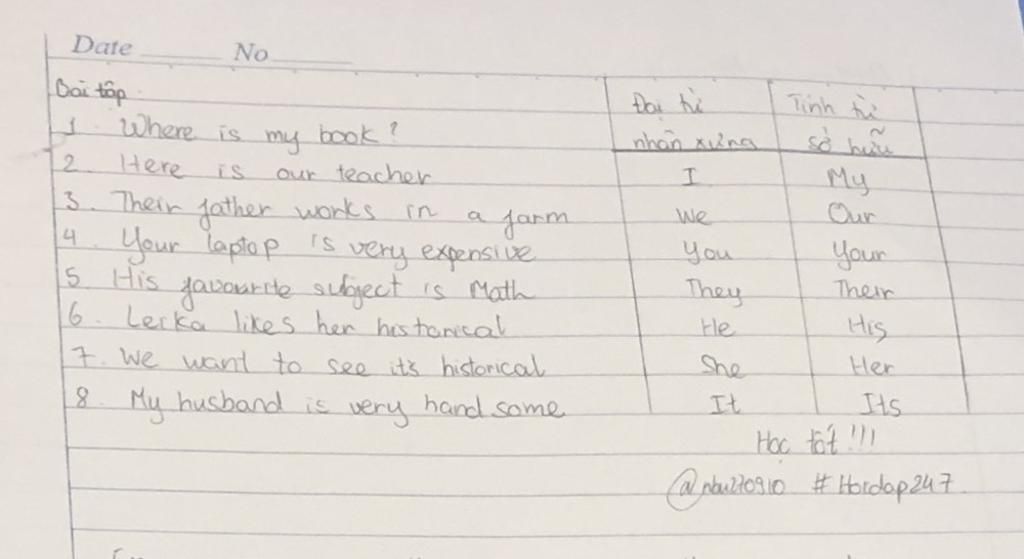 Date No
Bài tập
Đại từ nhân xưng
Tính từ sở hữu
1. Where is my book?
2. Here is our teacher
I My
3. Their father works in a farm
We Our
4. Your laptop is very expensive
You Your
5. His favourite subject is Math
They Their
6. Lerka likes her historical
He His
7. We want to see it's historical
She Her
8. My husband is very hand some
It Its
Học tốt !!!